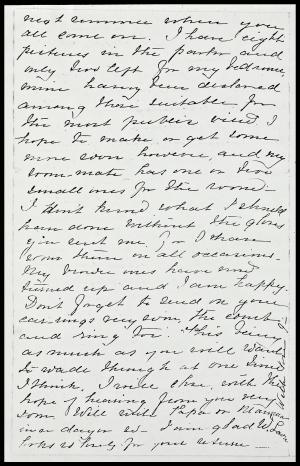 next summer when you
all come on. I have eight
pictures in the parlor and
only two left for my bedroom,
mine having been declared
among those suitable for
the most public view! I
hope to make or get some
more soon however, and my
room-mate has one or two
small ones for the room.
I don't know what I should
have done without the gloves
you sent me, for I have
worn them on all occasions.
My other ones have now
turned up and I am happy.
Don't forget to send on your
ear-rings very soon, the
and ring too. This being
as much as you will want
to wade through at one time
I think, I will close, with the
hope of hearing from you very
soon. Will write Papa or Mamma
in a day or so. I am glad W.
looks so for your return